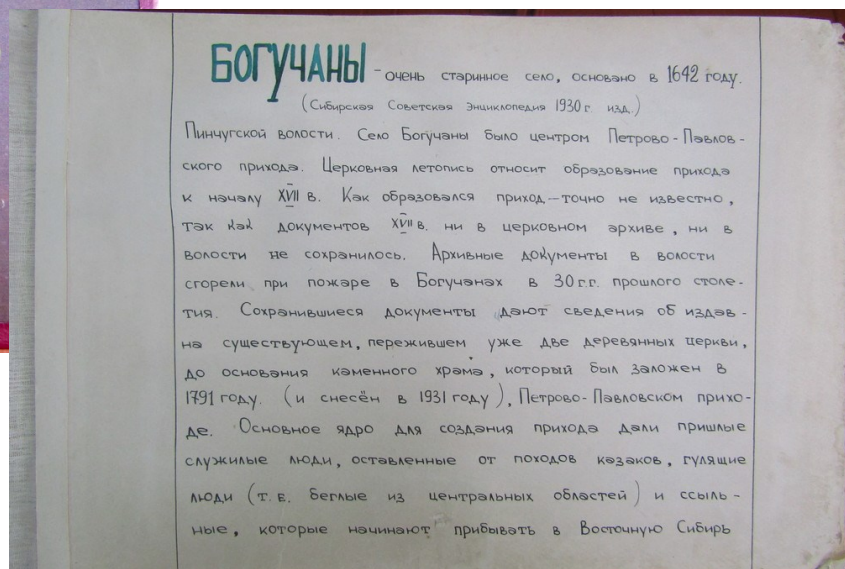 БОГУЧАНЫ - очень старинное село, основано в 1642 году.
(Сибирская Советская Энциклопедия 1930 г. изд.)
Пинчугской волости. Село Богучаны было центром Петрово-Павлов-
ского прихода. Церковная летопись относит образование прихода
к началу XVII в. Как образовался приход — точно не известно,
так как документов XVII в. ни в церковном архиве, ни в
волости не сохранилось. Архивные документы в волости
сгорели при пожаре в Богучанах в 30 г.г. прошлого столе-
тия. Сохранившиеся документы дают сведения об издав-
на существующем, пережившем уже две деревянных церкви,
до основания каменного храма, который был заложен в
1791 году. (и снесён в 1931 году), Петрово-Павловском прихо-
де. Основное ядро для создания прихода дали пришлые
служилые люди, оставленные от походов казаков, гулящие
люди (т.е. беглые из центральных областей) и ссыль-
ные, которые начинают прибывать в Восточную Сибирь